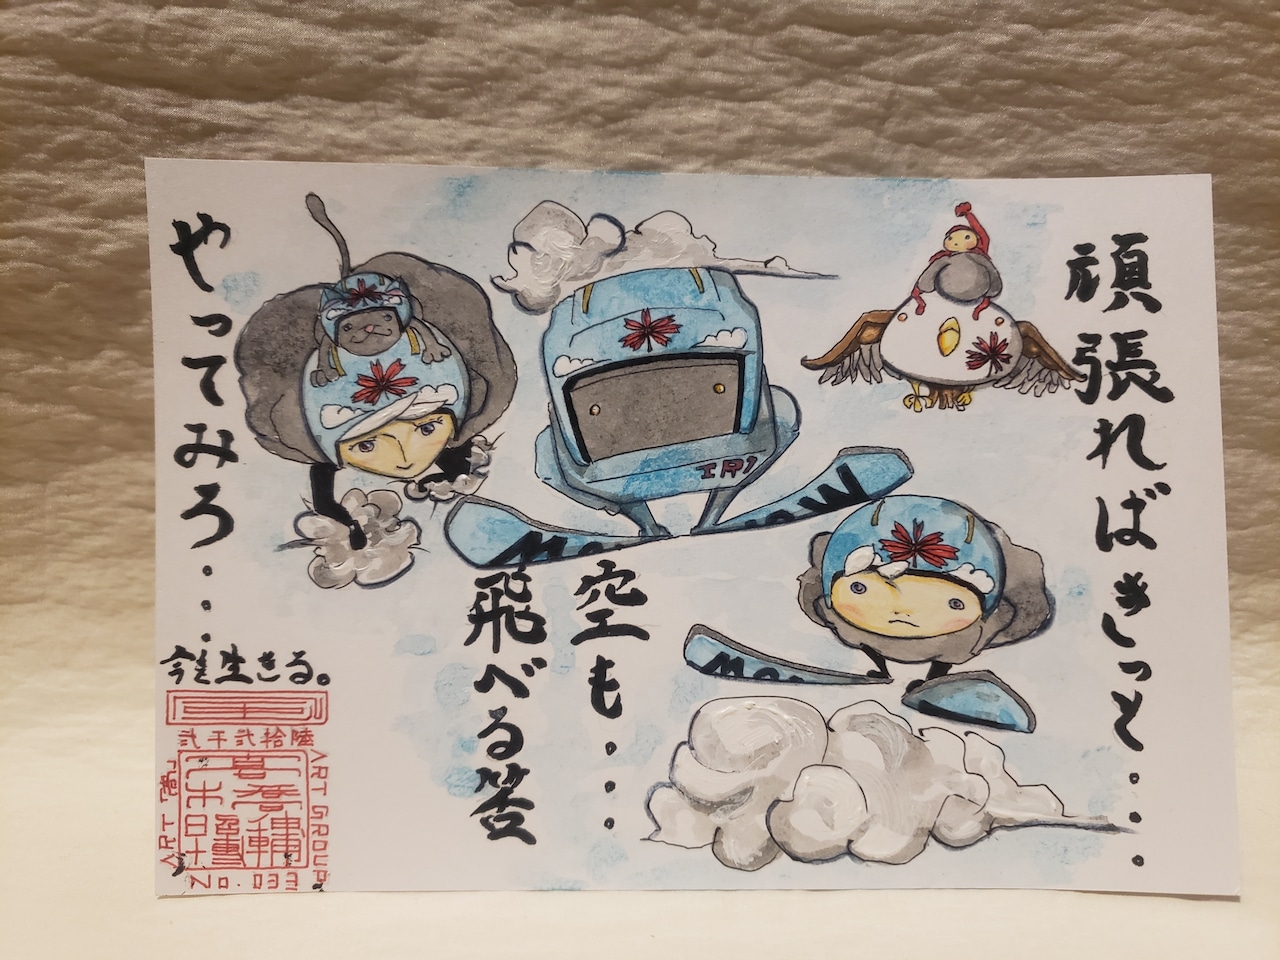 頑張ればきっと...。
空も...。
飛べる筈
やってみろ...
今を生きる。
弐千弐拾陸
ART GROUP
No.033